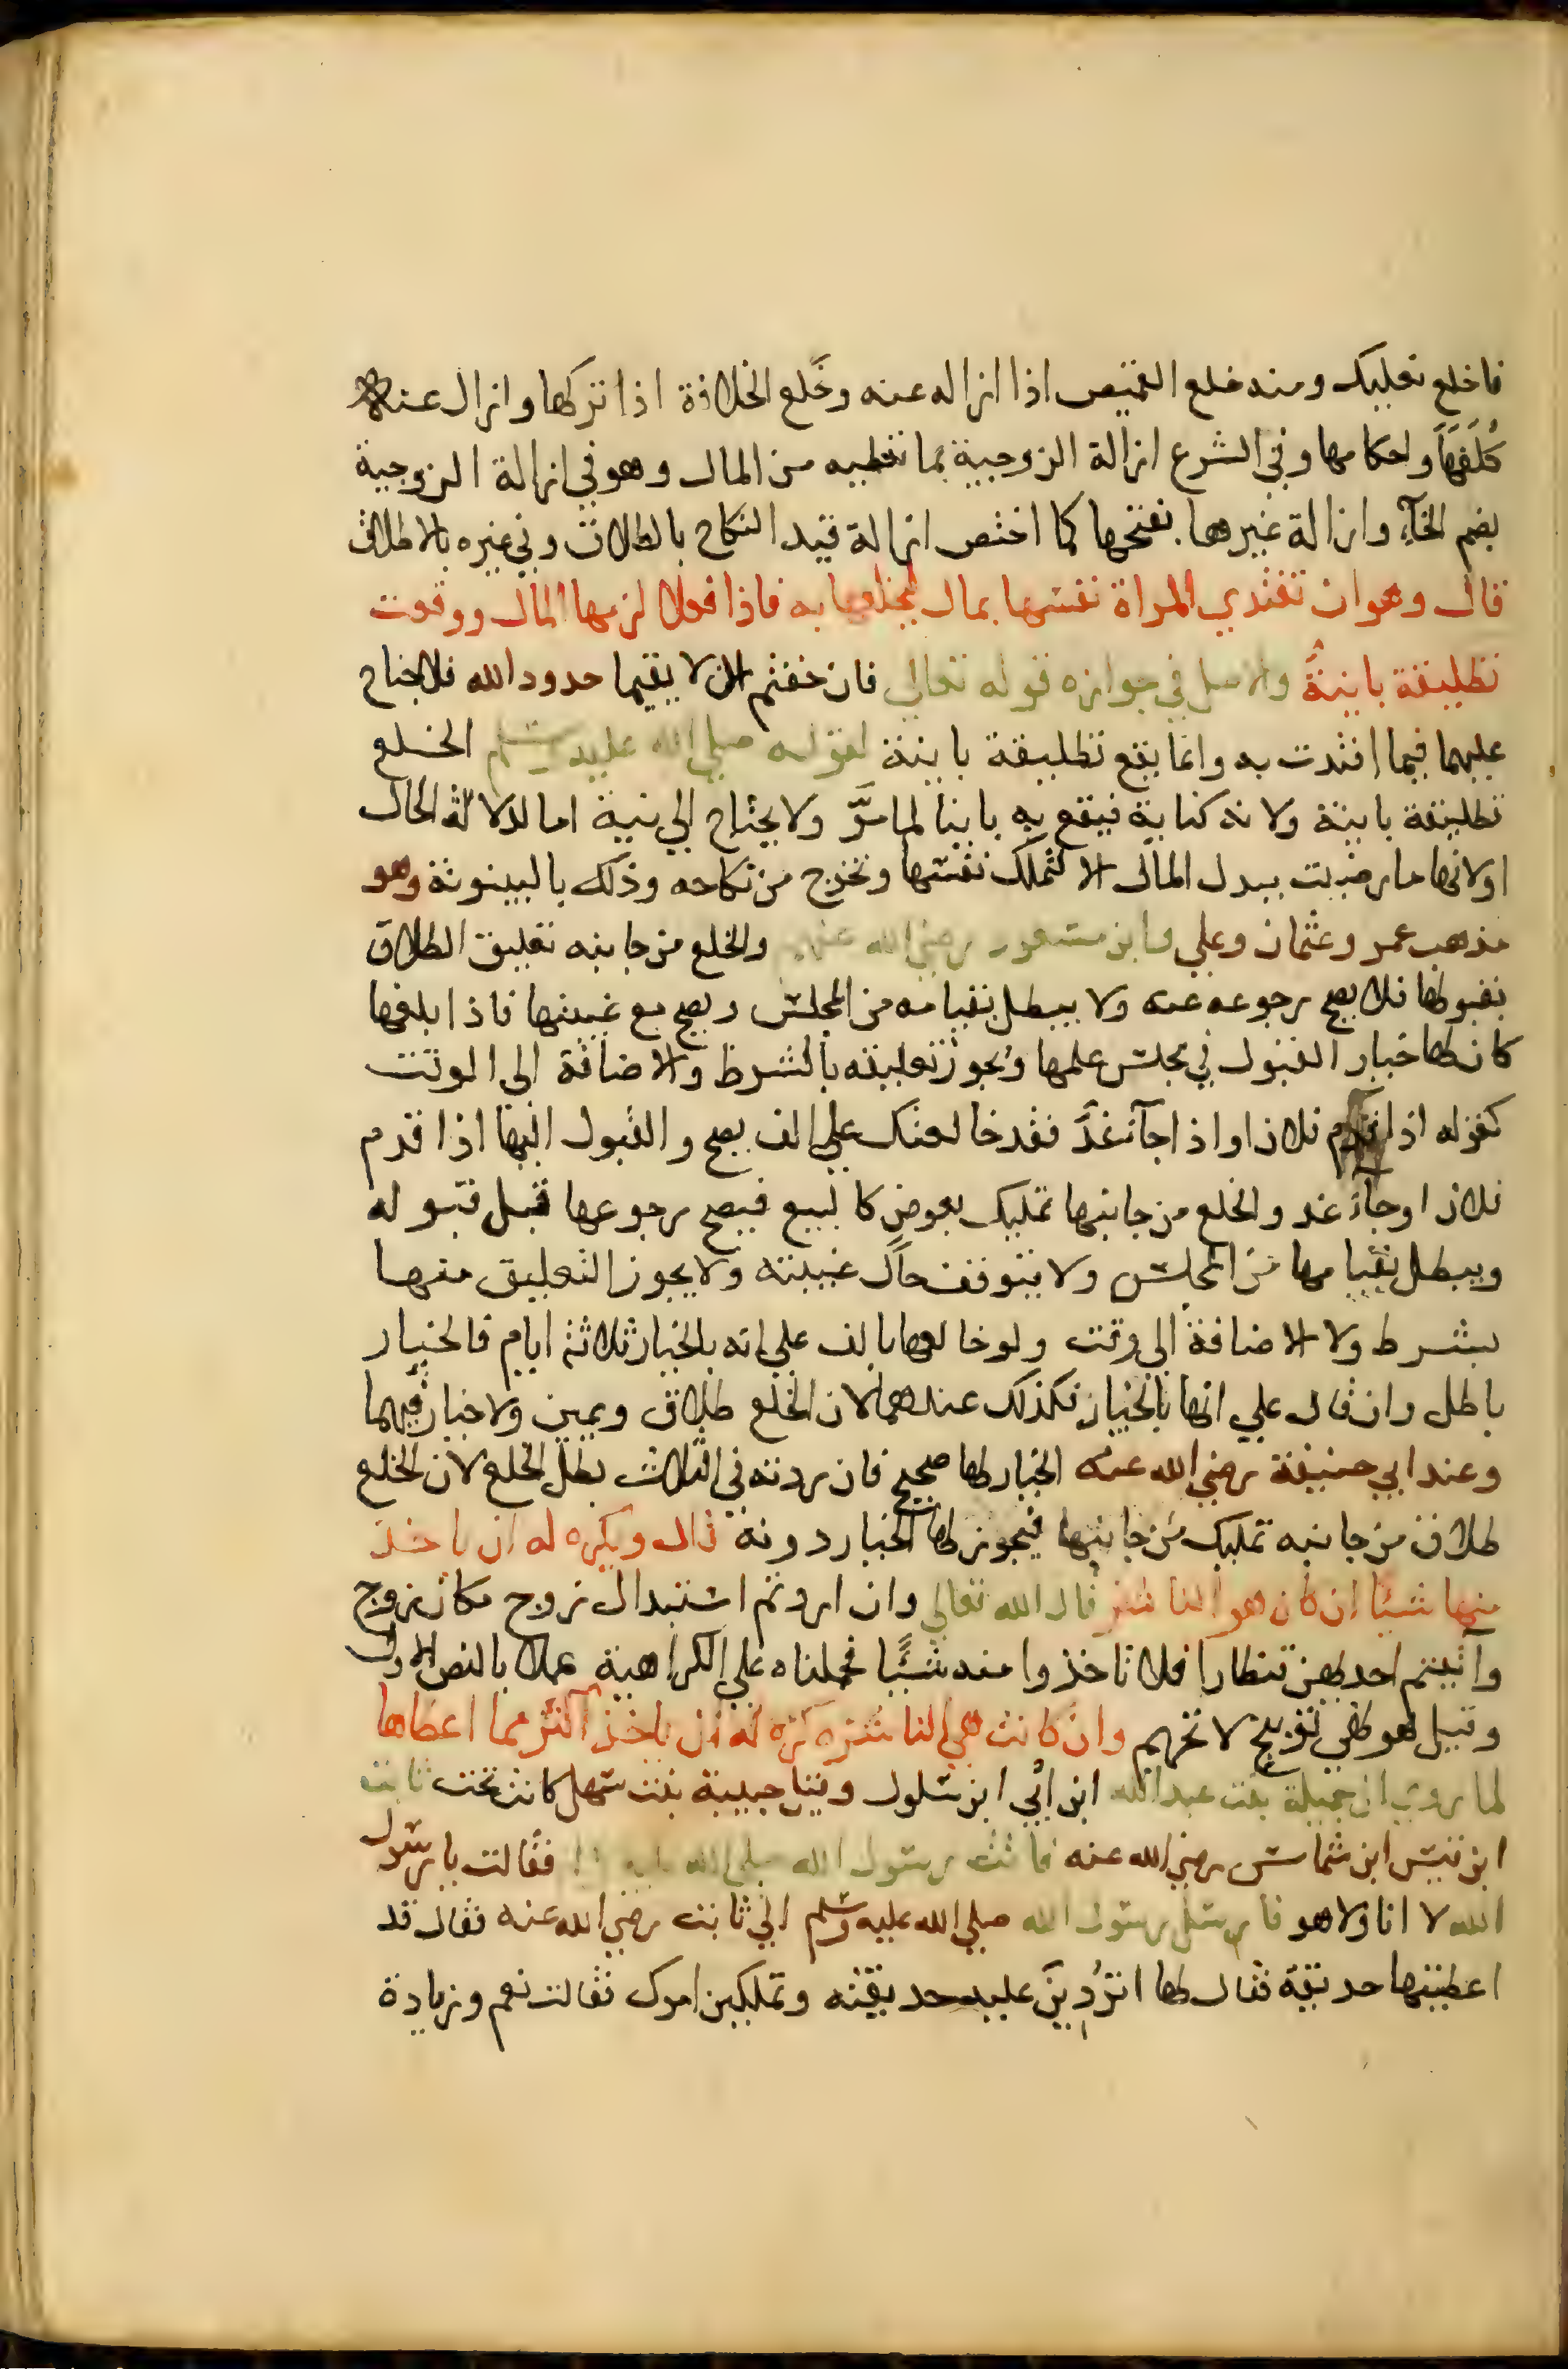 فاخلع نعليك ومنه خلع القميص اذا ازاله عنه وخَلع الخلافة اذا تركها وازال عنه
كُلَفَهَا واحكامها وفي الشرع ازالة الزوجية بما تعطيه من المال وهو في ازالة الزوجية
بضم الخآء وازالة غيرها بفتحها كما اختص ازالة قيد النكاح بالطلاق وفي غيره بالاطلاق
قال وهو ان تفتدي المراة نفسها بمال ليخلعها به فاذا فعلا لزمها المال ووقعت
تطليقة باينةً والاصل في جوازه قوله تعالي فان خفتم الا يقيما حدود الله فلا جناح
عليهما فيما افتدت به وانما يقع تطليقة باينة لقوله صلي الله عليه وسلم الخلع
تطليقة باينة ولانه كناية فيقع به باينا لما مرَّ ولا يحتاج الي نية اما لدلالة الحال
اولانها ما رضيت ببدل المال الا لتملك نفسها وتخرج من نكاحه وذلك بالبينونة وهو
مذهب عمر وعثمان وعلي وابن مسعود رضي الله عنهم والخلع من جانبه تعليق الطلاق
بقبولها فلا يصح رجوعه عنه ولا يبطل بقيامه من المجلس ويصح مع غيبتها فاذا بلغها
كان لها خيار القبول في مجلس علمها ويجوز تعليقه بالشرط والاضافة الي الوقت
كقوله اذا قدم فلان او اذا جآء غدٌ فقد خالعتك علي الف يصح والقبول اليها اذا قدم
فلان او جآء غد والخلع من جانبها تمليك بعوض كالبيع فيصح رجوعها قبل قبوله
ويبطل بقيامها من المجلس ولا يتوقف حال غيبته ولا يجوز التعليق منها
بشرط ولا الاضافة الي وقت ولو خالعها بالف علي انه بالخيار ثلاثة ايام فالخيار
باطل وان قال علي انها بالخيار فكذلك عندهما لان الخلع طلاق ويمين ولا خيار فيهما
وعند ابي حنيفة رضي الله عنه الخيار لها صحيح فان ردته في الثلاث بطل الخلع لان الخلع
طلاق من جانبه تمليك من جانبها فيجوز لها الخيار دونه قال ويكره له ان ياخذ
منها شيئا ان كان هو الناشز قال الله تعالي وان اردتم استبدال زوج مكان زوج
وآتيتم احديهن قنطارا فلا تاخذوا منه شيئًا فحملناه علي الكراهية عملا بالنص الاول
وقيل هو نهي توبيخ لا تحريم وان كانت هي الناشزة كره له ان ياخذ اكثر مما اعطاها
لما روي ان جميلة بنت عبد الله ابن ابي ابن سلول وقيل حبيبة بنت سهل كانت تحت ثابت
ابن قيس ابن شماس رضي الله عنه فاتت رسول الله صلي الله عليه وسلم فقالت يا رسول
الله لا انا ولا هو فارسل رسول الله صلي الله عليه وسلم الي ثابت رضي الله عنه فقال قد
اعطيتها حديقة فقال لها اتردِّينَ عليه حديقته وتملكين امرك فقالت نعم وزيادة